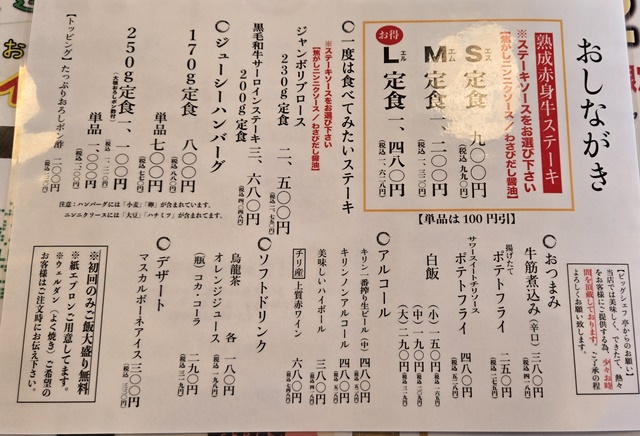 おしながき
【ビッグシェフ 亭からのお願い】
当店では美味しく、できたて、熱々
をお客様にご提供する為、少々お時
間を頂戴しております。ご了承の程
よろしくお願い致します。
熟成赤身牛ステーキ
※ステーキソースをお選び下さい
【焦がしニンニクソース／わさびだし醤油】
S定食 九〇〇円
エス
(税込 九九〇円)
M定食 一、二〇〇円
エム
(税込 一、三二〇円)
お得
L定食 一、四八〇円
エル
(税込 一、六二八円)
【単品は100円引】
〇一度は食べてみたいステーキ
※ステーキソースをお選び下さい
【焦がしニンニクソース／わさびだし醤油】
ジャンボリブロース
230g定食 二、五〇〇円
(税込 二、七五〇円)
黒毛和牛サーロインステーキ
200g定食 三、六八〇円
(税込 四、〇四八円)
〇ジューシーハンバーグ
170g定食 八〇〇円
(税込 八八〇円)
単品 七〇〇円
(税込 七七〇円)
250g定食 一、一〇〇円
(大根おろしポン酢付)
(税込 一、二一〇円)
単品 一、〇〇〇円
(税込 一、一〇〇円)
【トッピング】たっぷりおろしポン酢 二〇〇円
(税込 二二〇円)
注意：ハンバーグには「小麦」「卵」が含まれています。
ニンニクソースには「大豆」「ハチミツ」が含まれてます。
〇おつまみ
牛筋煮込み(辛口) 三八〇円
(税込 四一八円)
揚げたて
ポテトフライ 二五〇円
(税込 二七五円)
サワースイートチリソース
ポテトフライ 四八〇円
(税込 五二八円)
白飯 (小)一五〇円
(税込 一六五円)
(中)一九〇円
(大)二九〇円
〇アルコール
キリン一番搾り生ビール(中) 四八〇円
(税込 五二八円)
キリンノンアルコール 四八〇円
(税込 五二八円)
美味しいハイボール 三八〇円
(税込 四一八円)
チリ産 上質赤ワイン 六八〇円
(税込 七四八円)
〇ソフトドリンク
烏龍茶
オレンジジュース 各 一八〇円
(税込 一九八円)
(瓶)コカ・コーラ 二九〇円
(税込 三一九円)
〇デザート
マスカルポーネアイス 三〇〇円
(税込 三三〇円)
※初回のみご飯大盛り無料
※紙エプロンご用意してます。
※ウェルダン(よく焼き)ご希望の
お客様はご注文時にお伝え下さい。